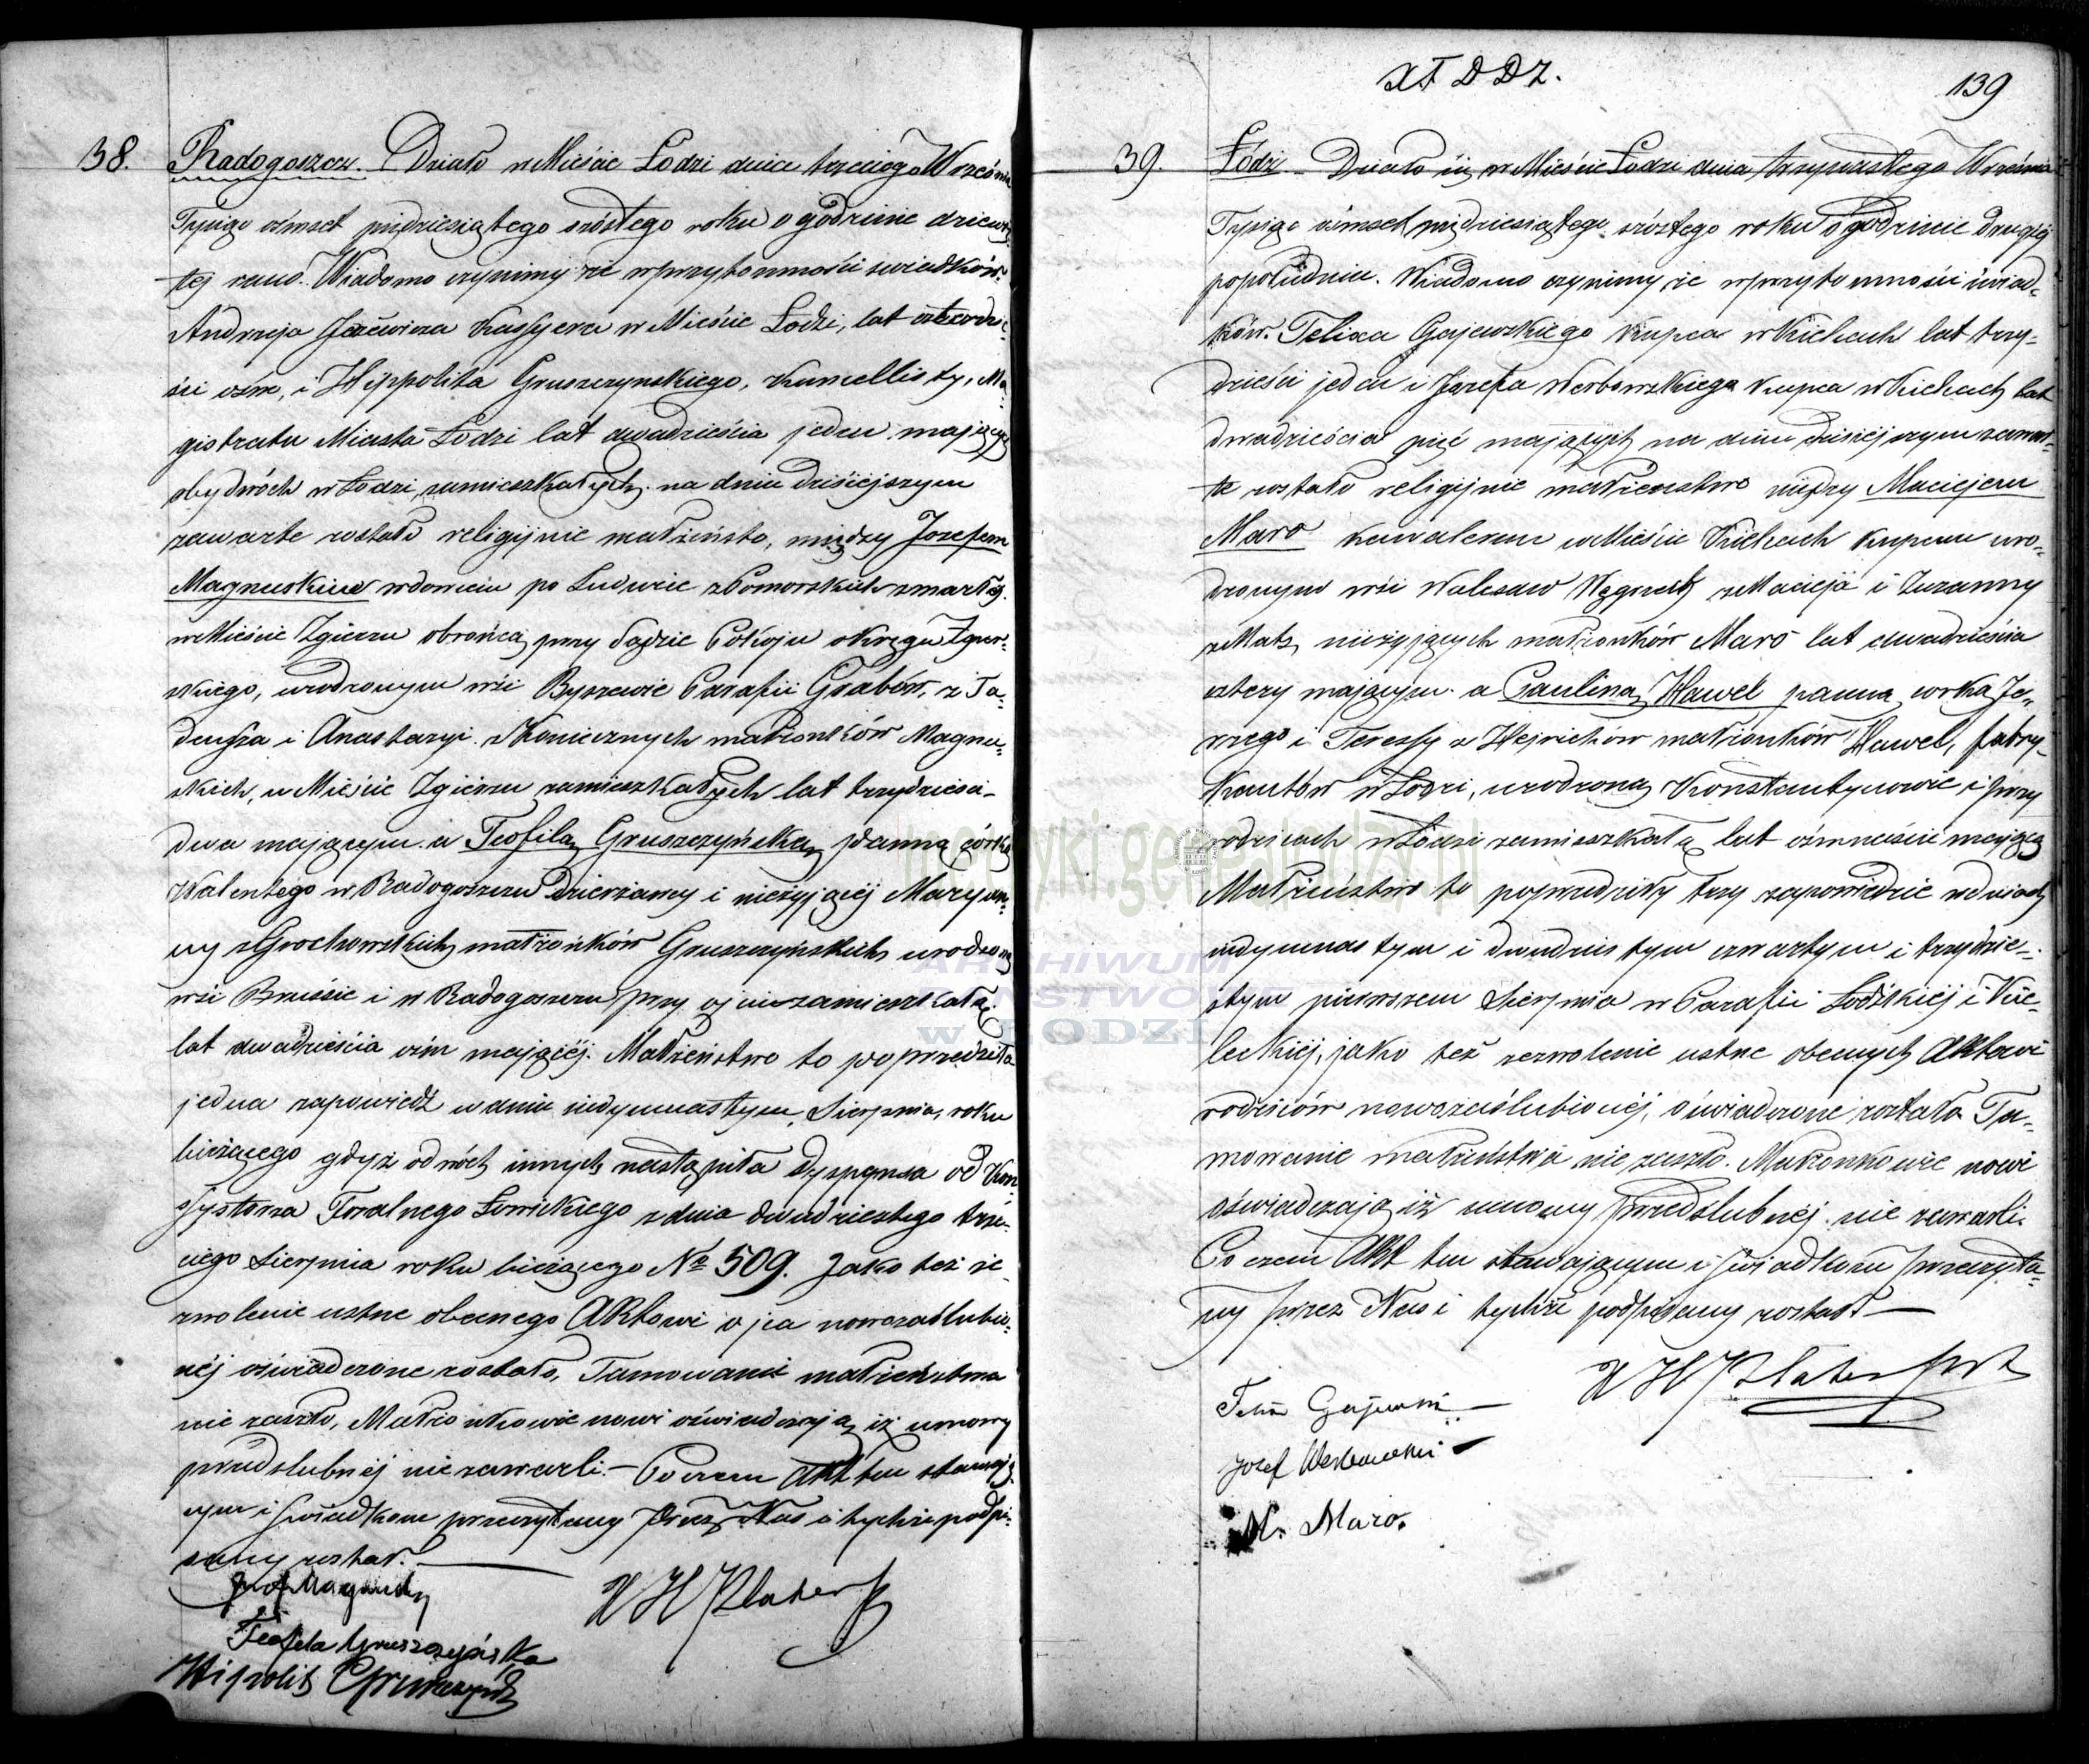 38.
Radogoszcz. Działo w Mieście Łodzi dnia trzeciego Wrześnie
Tysiąc ośmset pięćdziesiątego szóstego roku o godzinie dziewią-
tej rano. Wiadomo czynimy że w przytomności świadków
Andrzeja Kassyera w Mieście Łodzi, lat czterdzie-
ści ośm, i Hippolita Gruszczynskiego, Kancellisty, Ma-
gistratu Miasta Łodzi lat dwadzieścia jeden mających
obydwóch w Łodzi zamieszkałych, na dniu dzisiejszym
zawarte zostało religijnie małżeństo, między Jozefem
Magnuskim wdowcem po Ludwice z Pomorskich zmarłej
w Mieście Zgierzu obrońcą przy Sądzie Pokoju okręgu Zgier-
skiego, urodzonym wsi Byszewie Parafii Grabów, z Ta-
deusza i Anastazyi z Koniecznych małżonków Magnu-
skich, w Mieście Zgierzu zamieszkałych lat trzydzieści-
dwa mającym. a Teofilą Gruszczyńską panną, córką
Walentego w Radogoszczu Dzierżawcy i nieżyjącej Maryan-
ny z Grochowskich małżonków Gruszczyńskich urodzoną
wsi Brussie i w Radogoszczu przy ojcu zamieszkałą
lat dwadzieścia ośm mającej. Małżeństwo to poprzedziła
jedna zapowiedź w dniu siedymnastym, Sierpnia, roku
bieżącego gdyż od dwóch innych nastąpiła dyspensa od Kon-
systorza Foralnego Łowickiego z dnia dwudziestego trze-
ciego Sierpnia roku bieżącego Nº 509. Jako też ze-
zwolenie ustne obecnego Aktowi ojca nowozaślubio-
nej oświadczone zostało, Tamowanie małżeństwa
nie zaszło, Małżonkowie nowi oświadczają iż umowy
przedslubnej nie zawarli. — Po czem Akt ten stawają-
cym i świadkom przeczytany Przez Nas i tychże podpi-
sany został. —
Magnuski
Teofila Gruszczyńska
Hipolit Gruszczyński
X H Plater
XI DDZ.
139
39.
Łódź — Działo się w Mieście Łodzi dnia trzynastego Wrzesnia
Tysiąc ośmset pięćdziesiątego szóstego roku o godzinie drugiej
popołudniu. Wiadomo czynimy, że w przytomności świad-
ków. Felixa Gajewskiego Kupca w Kielcach lat trzy-
dzieści jeden i Jozefa Werbowskiego Kupca w Kielcach lat
dwadzieścia pięć mających na dniu dzisiejszym zawar-
te zostało religijnie małżenstwo między Maciejem
Maro kawalerem w Mieście Kielcach kupcem uro-
dzonym wsi w Węgrzech z Macieja i Zuzanny
nieżyjących małżonków Maro lat dwadzieścia
cztery mającym. a Pauliną Hawel panną, corką Je-
rzego i Teressy z małżonków Hawel, fabry-
kantów w Łodzi, urodzoną Konstantynowie i przy
rodzicach w Łodzi zamieszkałą lat ośmnaście mającą
Małżeństwo to poprzedziły trzy zapowiedzie w dniach
siedymnastym i dwudziestym czwartym i trzydzie-
stym pierwszem Sierpnia w Parafii Łodzkiej i Kie-
leckiej, jako też zezwolenie ustne obecnych Aktowi
rodziców nowozaślubionej, oświadczone zostało Ta-
mowanie małżeństwa nie zaszło. Małżonkowie nowi
oświadczają iż umowy przedslubnej nie zawarli.
Po czem Akt ten stawającym i świadkom przeczyta-
ny przez Nas i tychże podpisany został —
X H Plater
Felix Gajewski
Jozef Werbowski
M. Maro.
metryki.genealodzy.pl
ARCHIWUM
PAŃSTWOWE
W ŁODZI